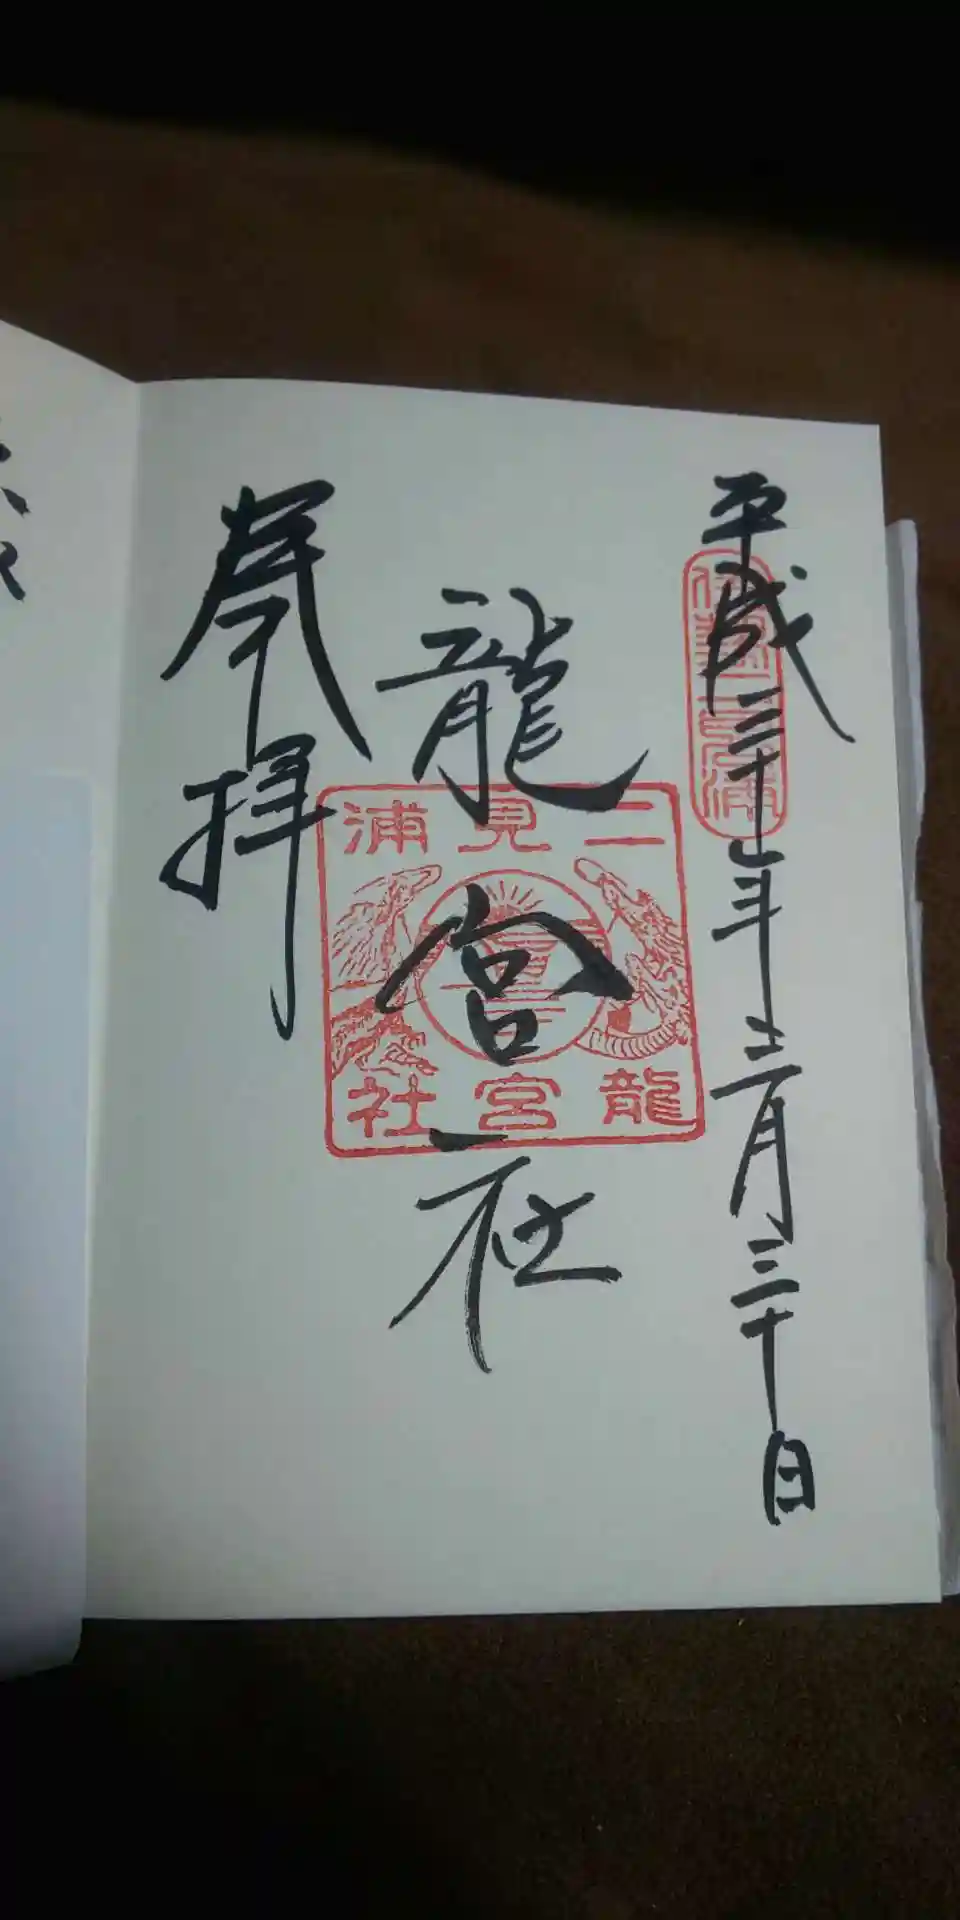 平成三十年十二月三十日
伊勢二見浦
龍宮社
二見浦
龍宮社
奉拝